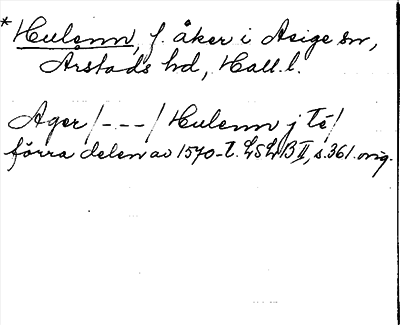 *Hulenn, f. åker i Asige sn,
Årstads hd, Hall. l.
Ager /---/ Hulenn j Té/
förra delen av 1570-t. LSLB II, s. 361. orig.